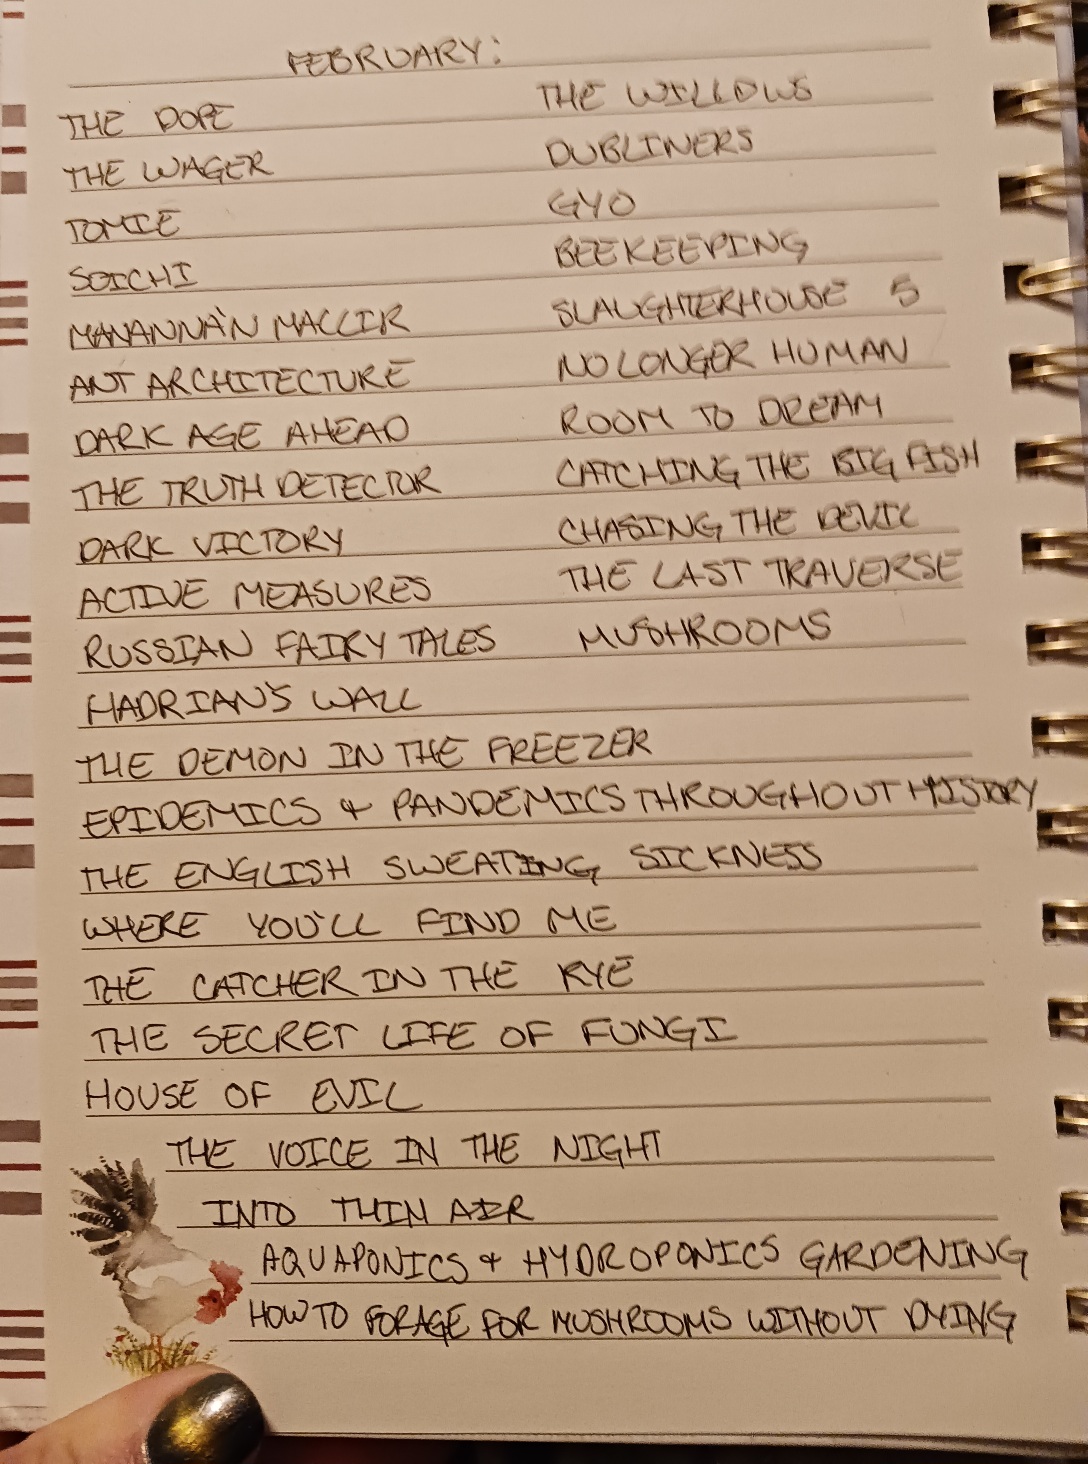 FEBRUARY:
THE DOPE
THE WAGER
TOMIE
SOICHI
MANANNÀN MACLIR
ANT ARCHITECTURE
DARK AGE AHEAD
THE TRUTH DETECTOR
DARK VICTORY
ACTIVE MEASURES
RUSSIAN FAIRY TALES
HADRIAN'S WALL
THE DEMON IN THE FREEZER
EPIDEMICS & PANDEMICS THROUGHOUT HISTORY
THE ENGLISH SWEATING SICKNESS
WHERE YOU'LL FIND ME
THE CATCHER IN THE RYE
THE SECRET LIFE OF FUNGI
HOUSE OF EVIL
THE VOICE IN THE NIGHT
INTO THIN AIR
AQUAPONICS & HYDROPONICS GARDENING
HOW TO FORAGE FOR MUSHROOMS WITHOUT DYING
THE WILLOWS
DUBLINERS
GYO
BEEKEEPING
SLAUGHTERHOUSE 5
NO LONGER HUMAN
ROOM TO DREAM
CATCHING THE BIG FISH
CHASING THE DEVIL
THE LAST TRAVERSE
MUSHROOMS